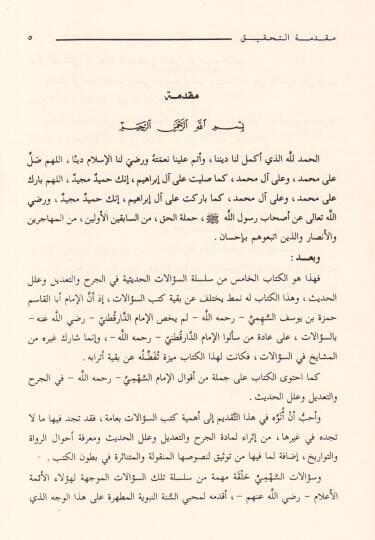 مقدمة التحقيق ٥
مقدمة
بسم الله الرحمن الرحيم
الحمد لله الذي أكمل لنا ديننا ، وأتم علينا نعمَتهُ ورضيَ لنا الإسلام دينًا ، اللهم صَلِّ
على محمد ، وعلى آل محمد ، كما صليت على آل إبراهيم ، إنك حميدٌ مجيدٌ ، اللهم بارك
على محمد ، وعلى آل محمد ، كما باركت على آل إبراهيم ، إنك حميدٌ مجيدٌ ، ورضي
الله تعالى عن أصحاب رسول الله ﷺ ، حملة الحق ، من السابقين الأولين ، من المهاجرين
والأنصار والذين اتبعوهم بإحسان .
وبعـد :
فهذا هو الكتاب الخامس من سلسلة السؤالات الحديثية في الجرح والتعديل وعلل
الحديث ، وهذا الكتاب له نمط يختلف عن بقية كتب السؤالات ، إذ أنَّ الإمام أبا القاسم
حمزة بن يوسف السَّهْمِيَّ – رحمه الله – لم يخص الإمام الدَّارقُطنيَّ – رضي الله عنه –
بالسؤالات ، على عادة من سألوا الإمام الدَّارقُطنيّ – رحمه الله – ، وإنما شارك غيره من
المشايخ في السؤالات ، فكانت لهذا الكتاب ميزة تُفَضِّلُه عن بقية أترابه .
كما احتوى الكتاب على جملة من أقوال الإمام السَّهْمِيِّ – رحمه الله – في الجرح
والتعديل وعلل الحديث .
وأحبُّ أنْ أُنَوِّه في هذا التَّقديم إلى أهمية كتب السؤالات بعامة ، فقد تجد فيها ما لا
تجده في غيرها ، من إثراء لمادة الجرح والتعديل وعلل الحديث ومعرفة أحوال الرواة
والتواريخ ، إضافة لما فيها من توثيق لنصوصها المنقولة والمتناثرة في بطون الكتب .
وسؤالات السَّهْمِيِّ حَلْقَة مهمة من سلسلة تلك السؤالات الموجهة لهؤلاء الأئمة
الأعلام – رضي الله عنهم – ، أقدمه لمحبي السُّنة النبوية المطهرة على هذا الوجه الذي